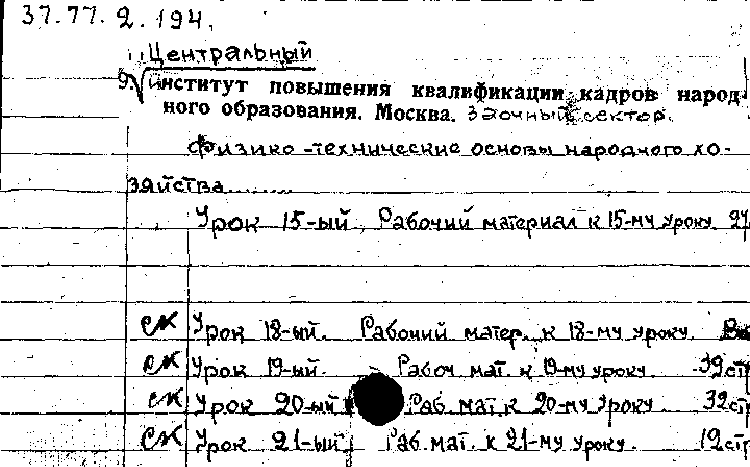 37.77.2.194.
Центральный
институт повышения квалификации кадров народ-
ного образования. Москва. Заочный сектор.
Физико-технические основы народного хо-
зяйства
Урок 15-ый, Рабочий материал к 15-му уроку
ск Урок 18-ый. Рабочий матер. к 18-му уроку.
ск Урок 19-ый. Рабоч мат. к 19-му уроку. 39 ст
ск Урок 20-ый Раб. мат. к 20-му уроку 32 ст
ск Урок 21-ый Раб. мат. к 21-му уроку. 19 стр